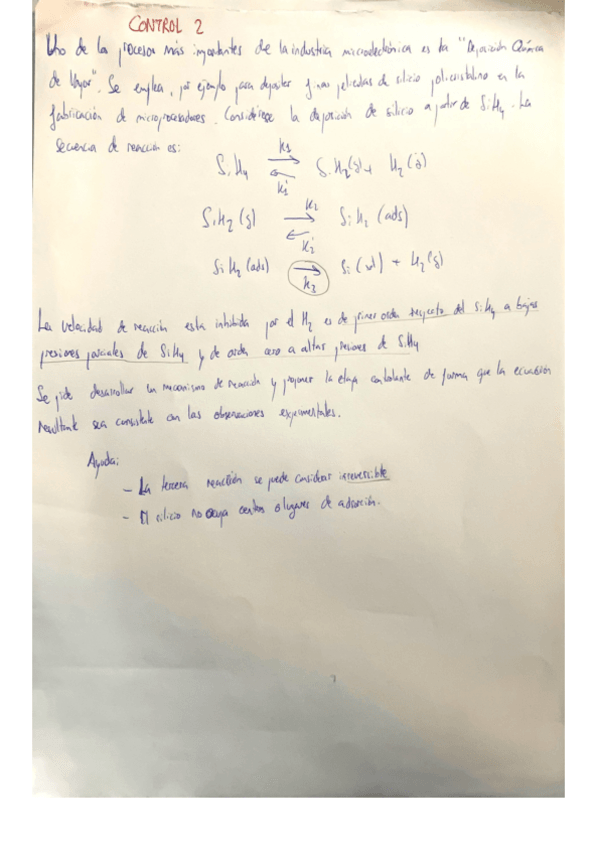 CONTROL 2
Uno de los procesos más importantes de la industria microelectrónica es la "Deposición Química
de Vapor". Se emplea, por ejemplo para depositar finas películas de silicio policristalino en la
fabricación de microprocesadores. Considérese la deposición de silicio a partir de SiH4. La
secuencia de reacción es:
SiH4 ⇌ SiH2(g) + H2(g)
k1
k1'
SiH2(g) ⇌ SiH2(ads)
k2
k2'
SiH2(ads) → Si(sol) + H2(g)
k3
La velocidad de reacción esta inhibida por el H2 es de primer orden respecto del SiH4 a bajas
presiones parciales de SiH4 y de orden cero a altas presiones de SiH4
Se pide desarrollar un mecanismo de reacción y proponer la etapa controlante de forma que la ecuación
resultante sea consistente con las observaciones experimentales.
Ayuda:
- La tercera reacción se puede considerar irreversible
- El silicio no ocupa centros o lugares de adsorción.